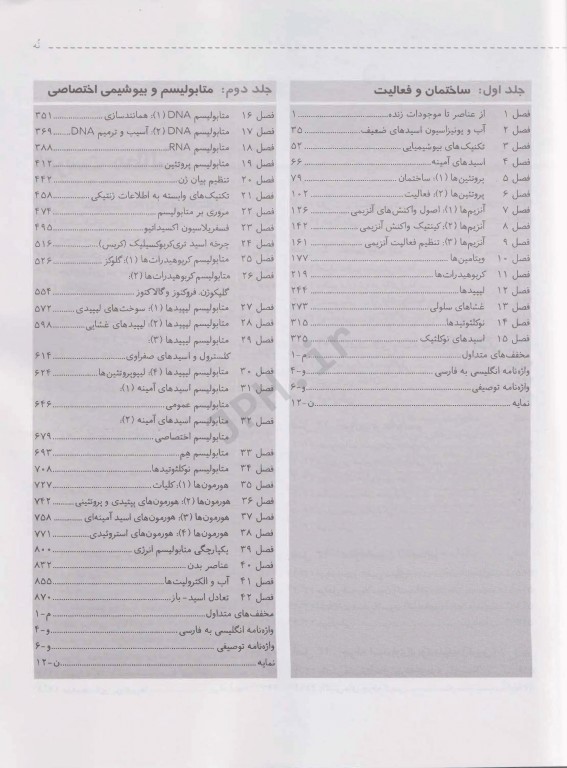 نُه
جلد اول: ساختمان و فعالیت
فصل ۱ از عناصر تا موجودات زنده ۱
فصل ۲ آب و یونیزاسیون اسیدهای ضعیف ۳۵
فصل ۳ تکنیک‌های بیوشیمیایی ۵۲
فصل ۴ اسیدهای آمینه ۶۶
فصل ۵ پروتئین‌ها (۱)، ساختمان ۷۹
فصل ۶ پروتئین‌ها (۲)، فعالیت ۱۰۲
فصل ۷ آنزیم‌ها (۱)، اصول واکنش‌های آنزیمی ۱۲۶
فصل ۸ آنزیم‌ها (۲)، کینتیک واکنش آنزیمی ۱۴۲
فصل ۹ آنزیم‌ها (۳)، تنظیم فعالیت آنزیمی ۱۶۱
فصل ۱۰ ویتامین‌ها ۱۷۷
فصل ۱۱ کربوهیدرات‌ها ۲۱۹
فصل ۱۲ لیپیدها ۲۴۴
فصل ۱۳ غشاهای سلولی ۲۷۳
فصل ۱۴ نوکلئوتیدها ۳۱۵
فصل ۱۵ اسیدهای نوکلئیک ۳۲۵
مخفف‌های متداول م-۱
واژه‌نامه انگلیسی به فارسی و-۴
واژه‌نامه توصیفی و-۶
نمایه ن-۱۲
جلد دوم: متابولیسم و بیوشیمی اختصاصی
فصل ۱۶ متابولیسم DNA (۱)؛ همانندسازی ۳۵۱
فصل ۱۷ متابولیسم DNA (۲)؛ آسیب و ترمیم DNA ۳۶۹
فصل ۱۸ متابولیسم RNA ۳۸۸
فصل ۱۹ متابولیسم پروتئین ۴۱۲
فصل ۲۰ تنظیم بیان ژن ۴۴۲
فصل ۲۱ تکنیک‌های وابسته به اطلاعات ژنتیکی ۴۵۸
فصل ۲۲ مروری بر متابولیسم ۴۷۴
فصل ۲۳ فسفریلاسیون اکسیداتیو ۴۹۵
فصل ۲۴ چرخه اسید تری‌کربوکسیلیک (کربس) ۵۱۶
فصل ۲۵ متابولیسم کربوهیدرات‌ها (۱)؛ گلوکز ۵۲۶
فصل ۲۶ متابولیسم کربوهیدرات‌ها (۲)؛
گلیکوژن، فروکتوز و گالاکتوز ۵۵۴
فصل ۲۷ متابولیسم لیپیدها (۱)؛ سوخت‌های لیپیدی ۵۷۲
فصل ۲۸ متابولیسم لیپیدها (۲)؛ لیپیدهای غشایی ۵۹۸
فصل ۲۹ متابولیسم لیپیدها (۳)؛
کلسترول و اسیدهای صفراوی ۶۱۴
فصل ۳۰ متابولیسم لیپیدها (۴)؛ لیپوپروتئین‌ها ۶۲۴
فصل ۳۱ متابولیسم اسیدهای آمینه (۱)؛
متابولیسم عمومی ۶۴۶
فصل ۳۲ متابولیسم اسیدهای آمینه (۲)؛
متابولیسم اختصاصی ۶۷۹
فصل ۳۳ متابولیسم هِم ۶۹۳
فصل ۳۴ متابولیسم نوکلئوتیدها ۷۰۸
فصل ۳۵ هورمون‌ها (۱)؛ کلیات ۷۲۷
فصل ۳۶ هورمون‌ها (۲)؛ هورمون‌های پپتیدی و پروتئینی ۷۴۲
فصل ۳۷ هورمون‌ها (۳)؛ هورمون‌های اسید آمینه‌ای ۷۵۸
فصل ۳۸ هورمون‌ها (۴)؛ هورمون‌های استروئیدی ۷۷۱
فصل ۳۹ یکپارچگی متابولیسم انرژی ۸۰۰
فصل ۴۰ عناصر بدن ۸۳۲
فصل ۴۱ آب و الکترولیت‌ها ۸۵۵
فصل ۴۲ تعادل اسید - باز ۸۷۰
مخفف‌های متداول م-۱
واژه‌نامه انگلیسی به فارسی و-۴
واژه‌نامه توصیفی و-۶
نمایه ن-۱۲
JPH.ir